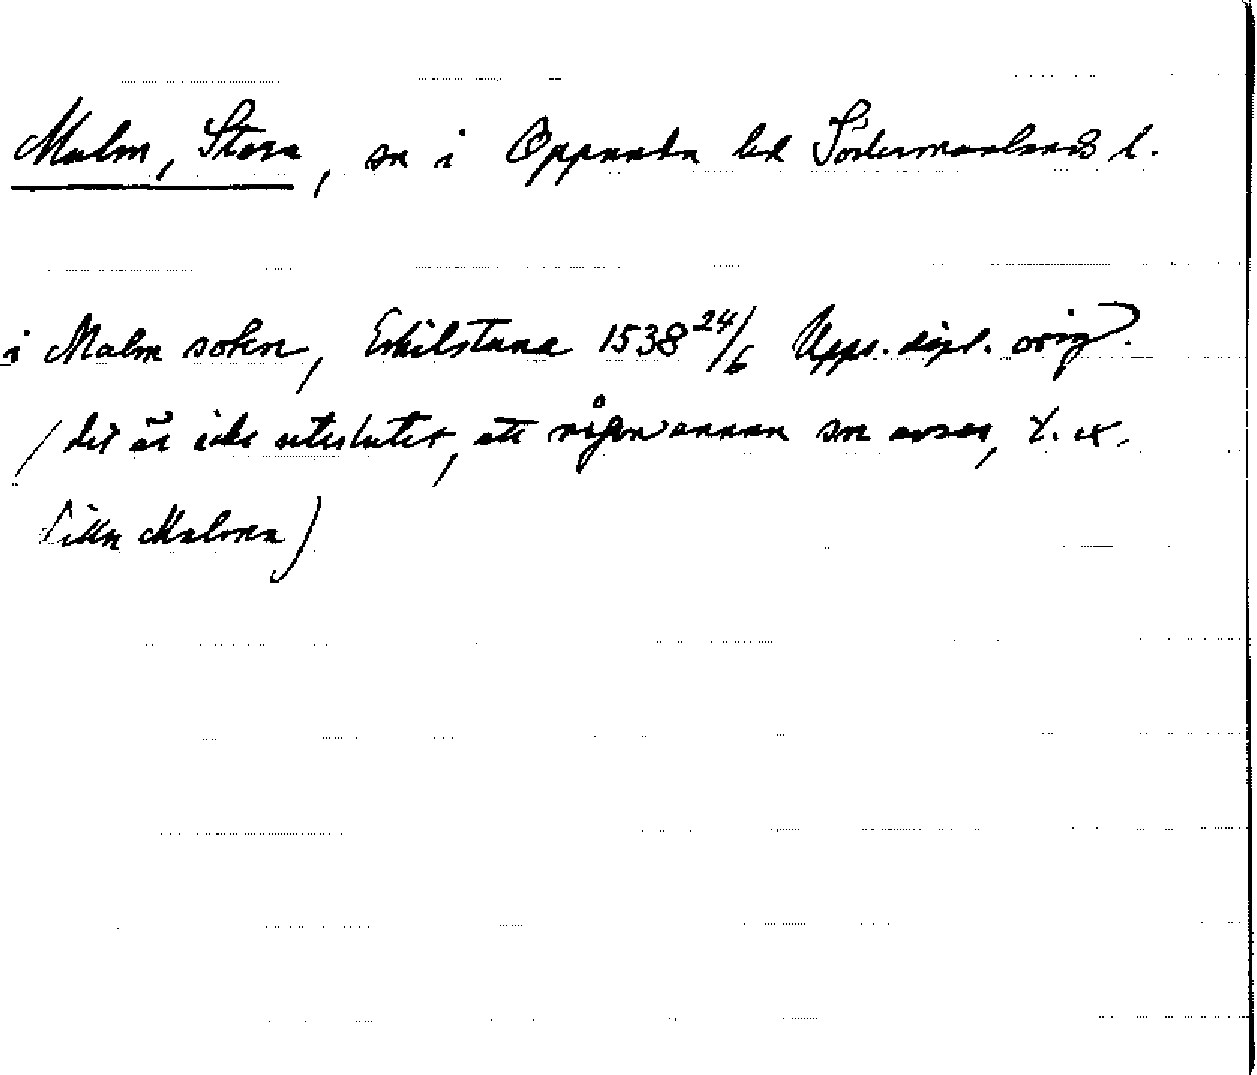 Malm, Stora, sn i Oppunda hd Södermanlands l.
i Malm soken, Eskilstuna 1538 24/6 Upps. dipl. orig.
(det är icke uteslutet, att någon annan sn avses, t. ex.
Lilla Malma)